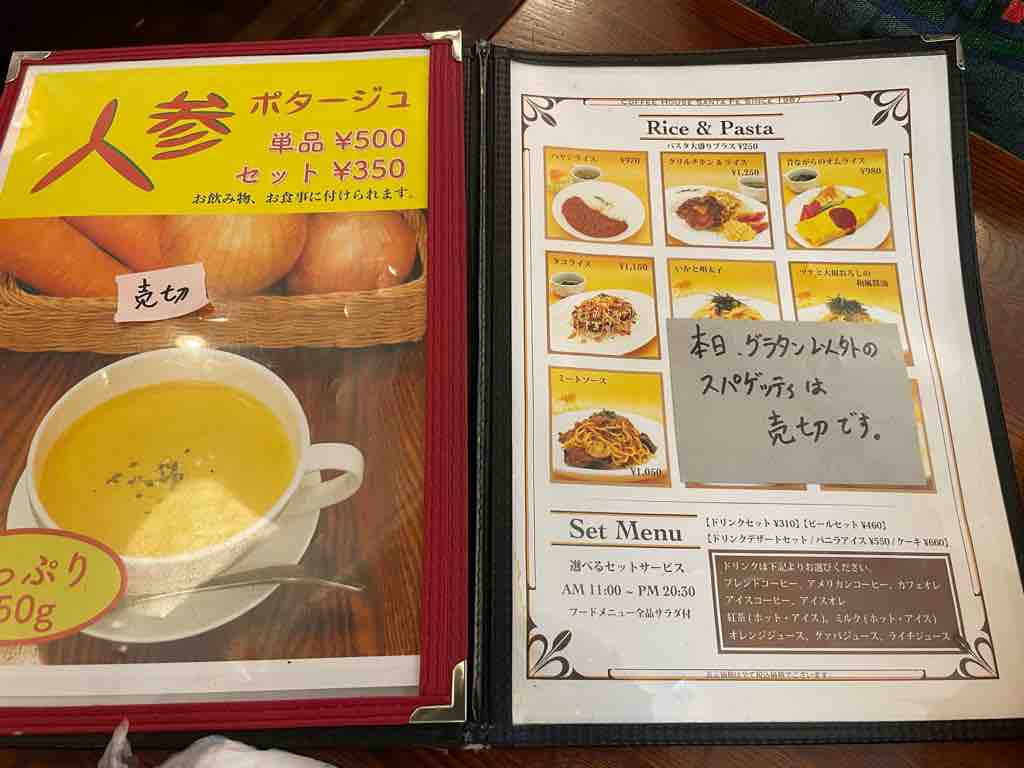 人参
ポタージュ
単品 ¥500
セット ¥350
お飲み物、お食事に付けられます。
売切
っぷり
50g
COFFEE HOUSE SANTA FE SINCE 1987
Rice & Pasta
パスタ大盛りプラス ¥250
ハヤシライス ¥970
グリルチキン&ライス
¥1,250
昔ながらのオムライス
¥980
タコライス ¥1,150
いかと明太子
ツナと大根おろしの
和風醤油
ミートソース
¥1,050
本日、グラタン以外の
スパゲッティは
売切です。
Set Menu
【ドリンクセット ¥310】【ビールセット ¥460】
【ドリンクデザートセット / バニラアイス ¥550 / ケーキ ¥660】
選べるセットサービス
AM 11:00 ~ PM 20:30
フードメニュー全品サラダ付
ドリンクは下記よりお選びください。
ブレンドコーヒー、アメリカンコーヒー、カフェオレ
アイスコーヒー、アイスオレ
紅茶 (ホット・アイス)、ミルク (ホット・アイス)
オレンジジュース、グァバジュース、ライチジュース
表示価格は全て税込価格でございます。